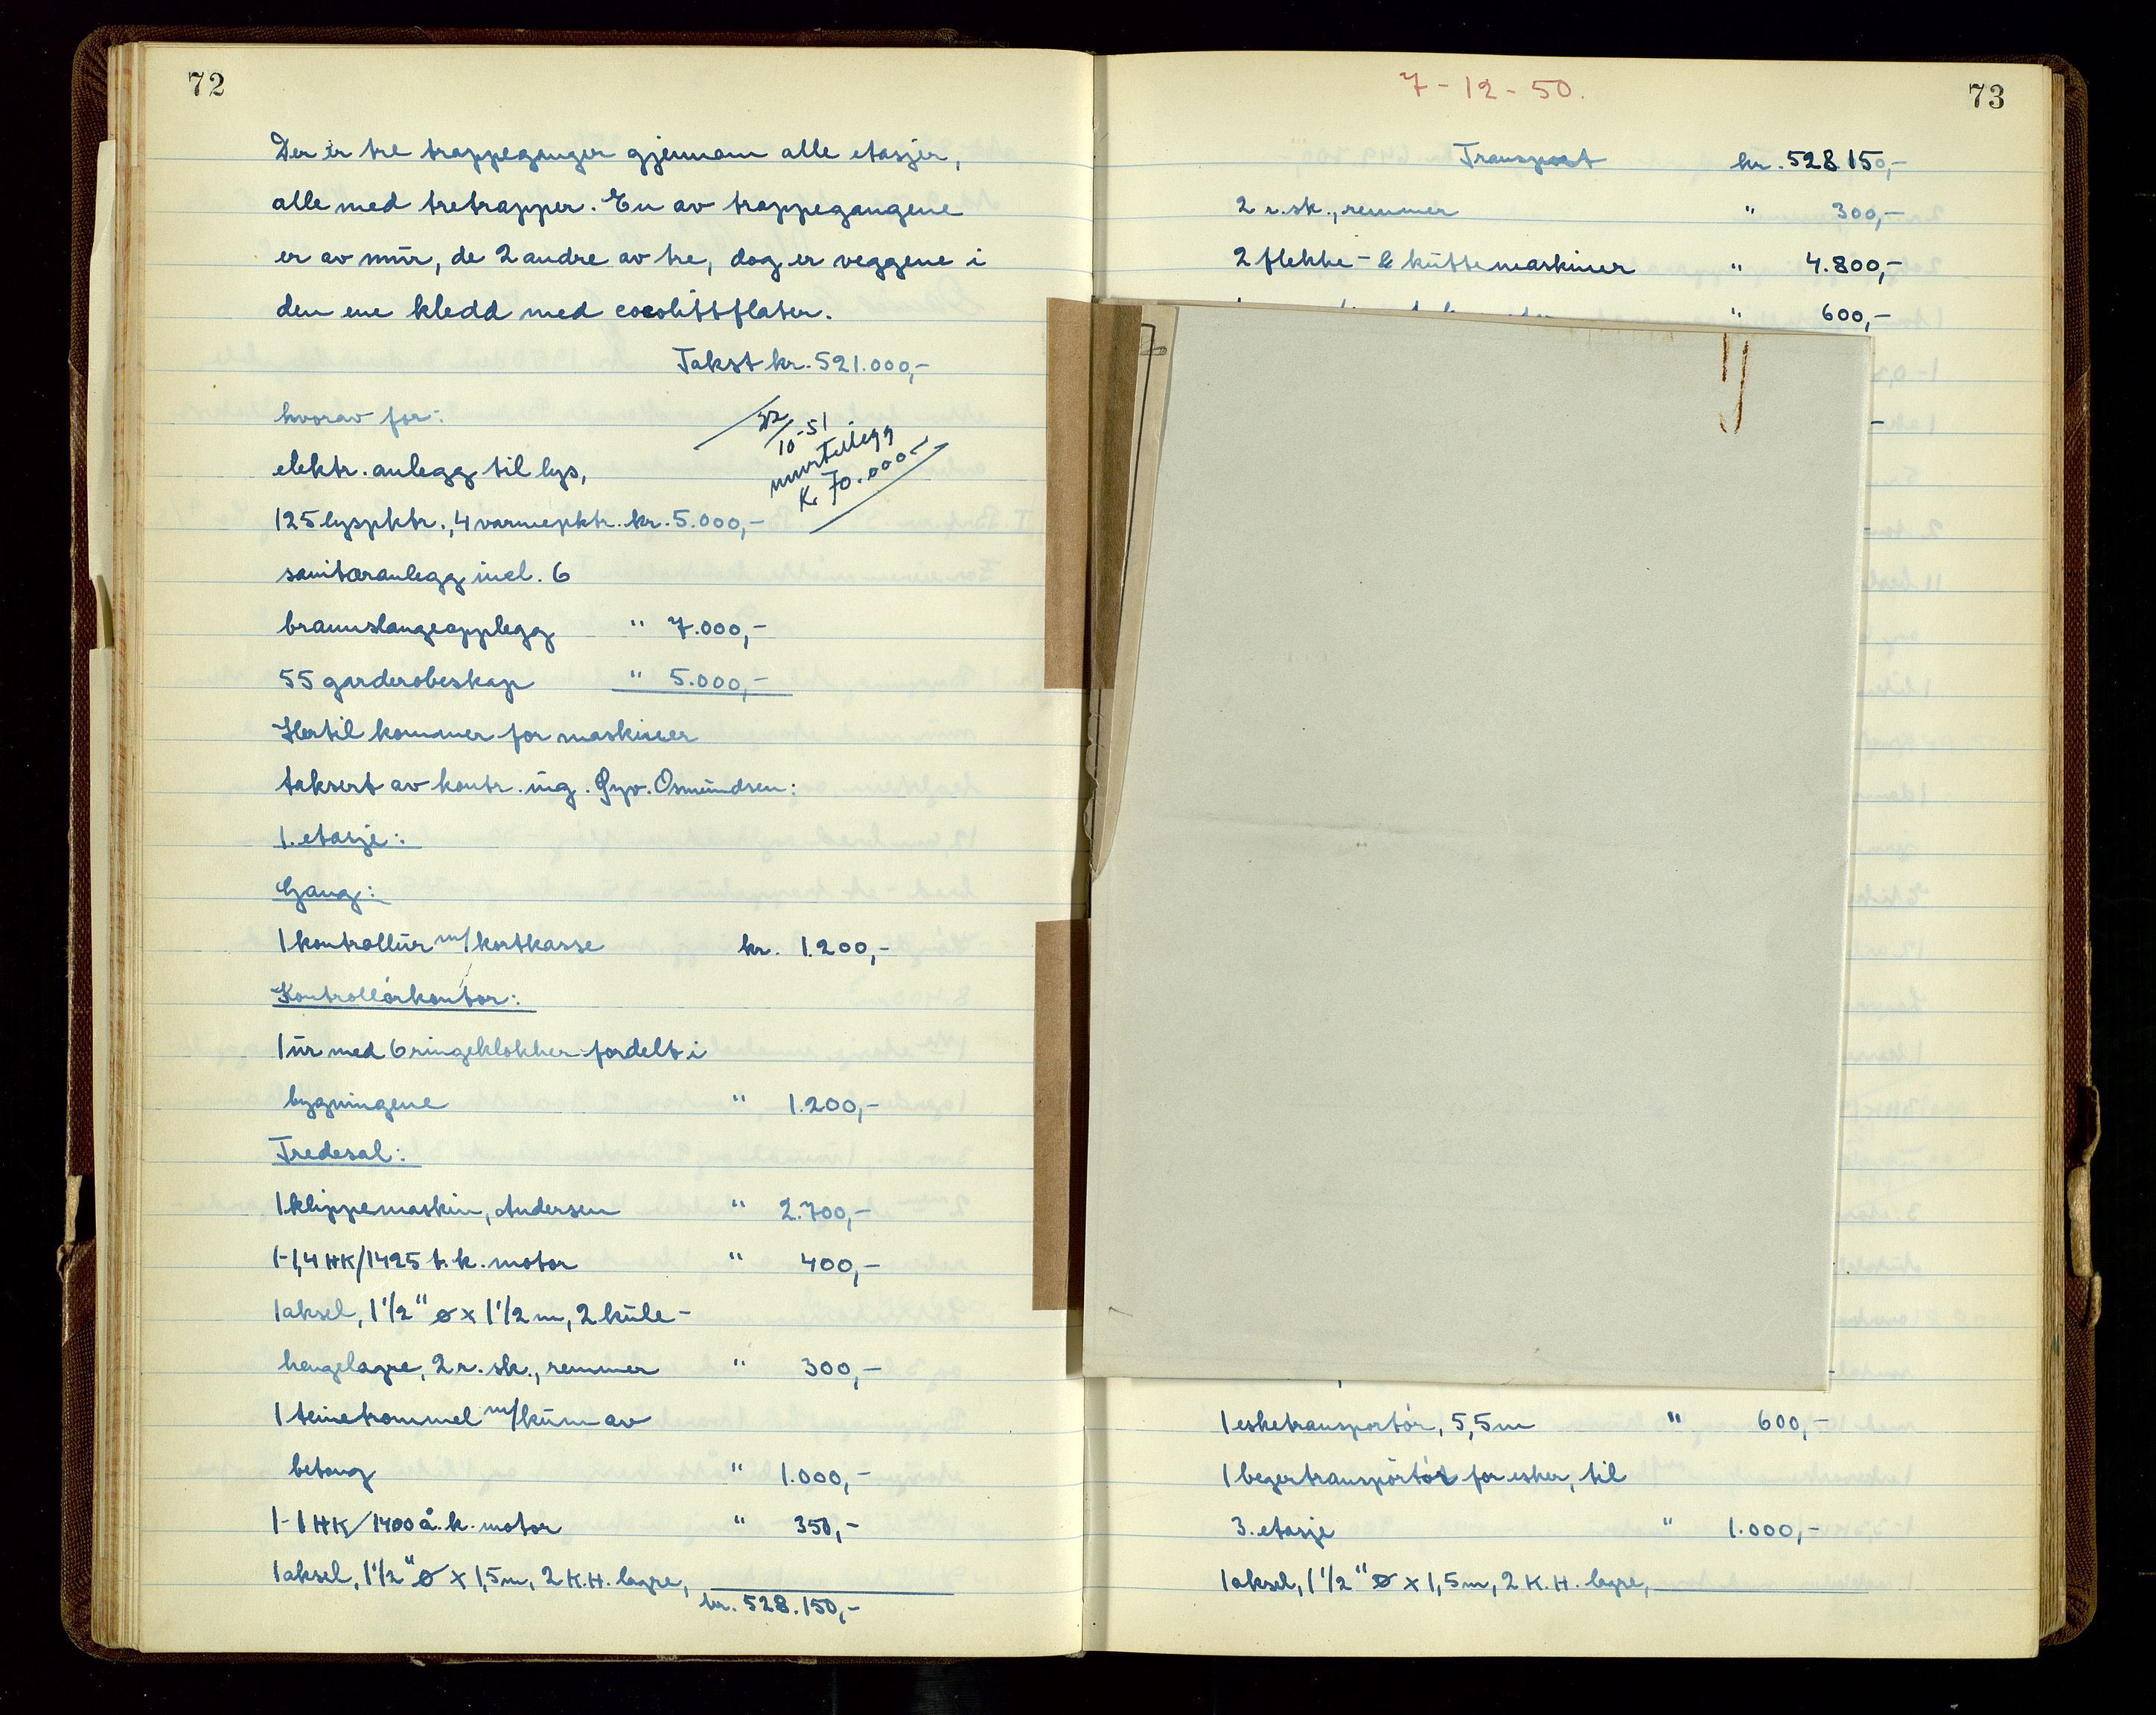 72
Der er tre trappeganger gjennom alle etasjer,
alle med tretrapper. En av trappegangene
er av mur, de 2 andre av tre, dog er veggene i
den ene kledd med cocolittflater.
Takst kr. 521.000,-
hvorav for:
22/10-51
murtillegg
K. 70.000.-
elektr. anlegg til lys,
125 lyspktr., 4 varmepktr. kr. 5.000,-
sanitæranlegg incl. 6
brannslangeopplegg " 7.000,-
55 garderobeskap " 5.000,-
Hertil kommer for maskiner
taksert av kontr. ing. Gyv. Osmundsen:
1. etasje:
Gang:
1 kontrollur m/kortkasse kr. 1.200,-
Kontrollørkontor:
1 ur med 6 ringeklokker fordelt i
bygningene " 1.200,-
Tredesal:
1 klippemaskin, Andersen " 2.700,-
1-1,4 HK/1425 t.k. motor " 400,-
1 aksel, 1 1/2" ø x 1 1/2 m, 2 kule-
hengelagre, 2 r. sk., remmer " 300,-
1 teinetrommel m/kum av
betong " 1.000,-
1-1 HK/1400 å.k. motor " 350,-
1 aksel, 1 1/2" ø x 1,5m, 2 K.H. lagre,
kr. 528.150,-
7-12-50.
73
Transport kr. 528.150,-
2 r.sk., remmer " 300,-
2 flekke- & kuttemaskiner " 4.800,-
" 600,-
1 esketransportør, 5,5m " 600,-
1 begertransportør for esker, til
3. etasje " 1.000,-
1 aksel, 1 1/2" ø x 1,5m, 2 K.H. lagre,